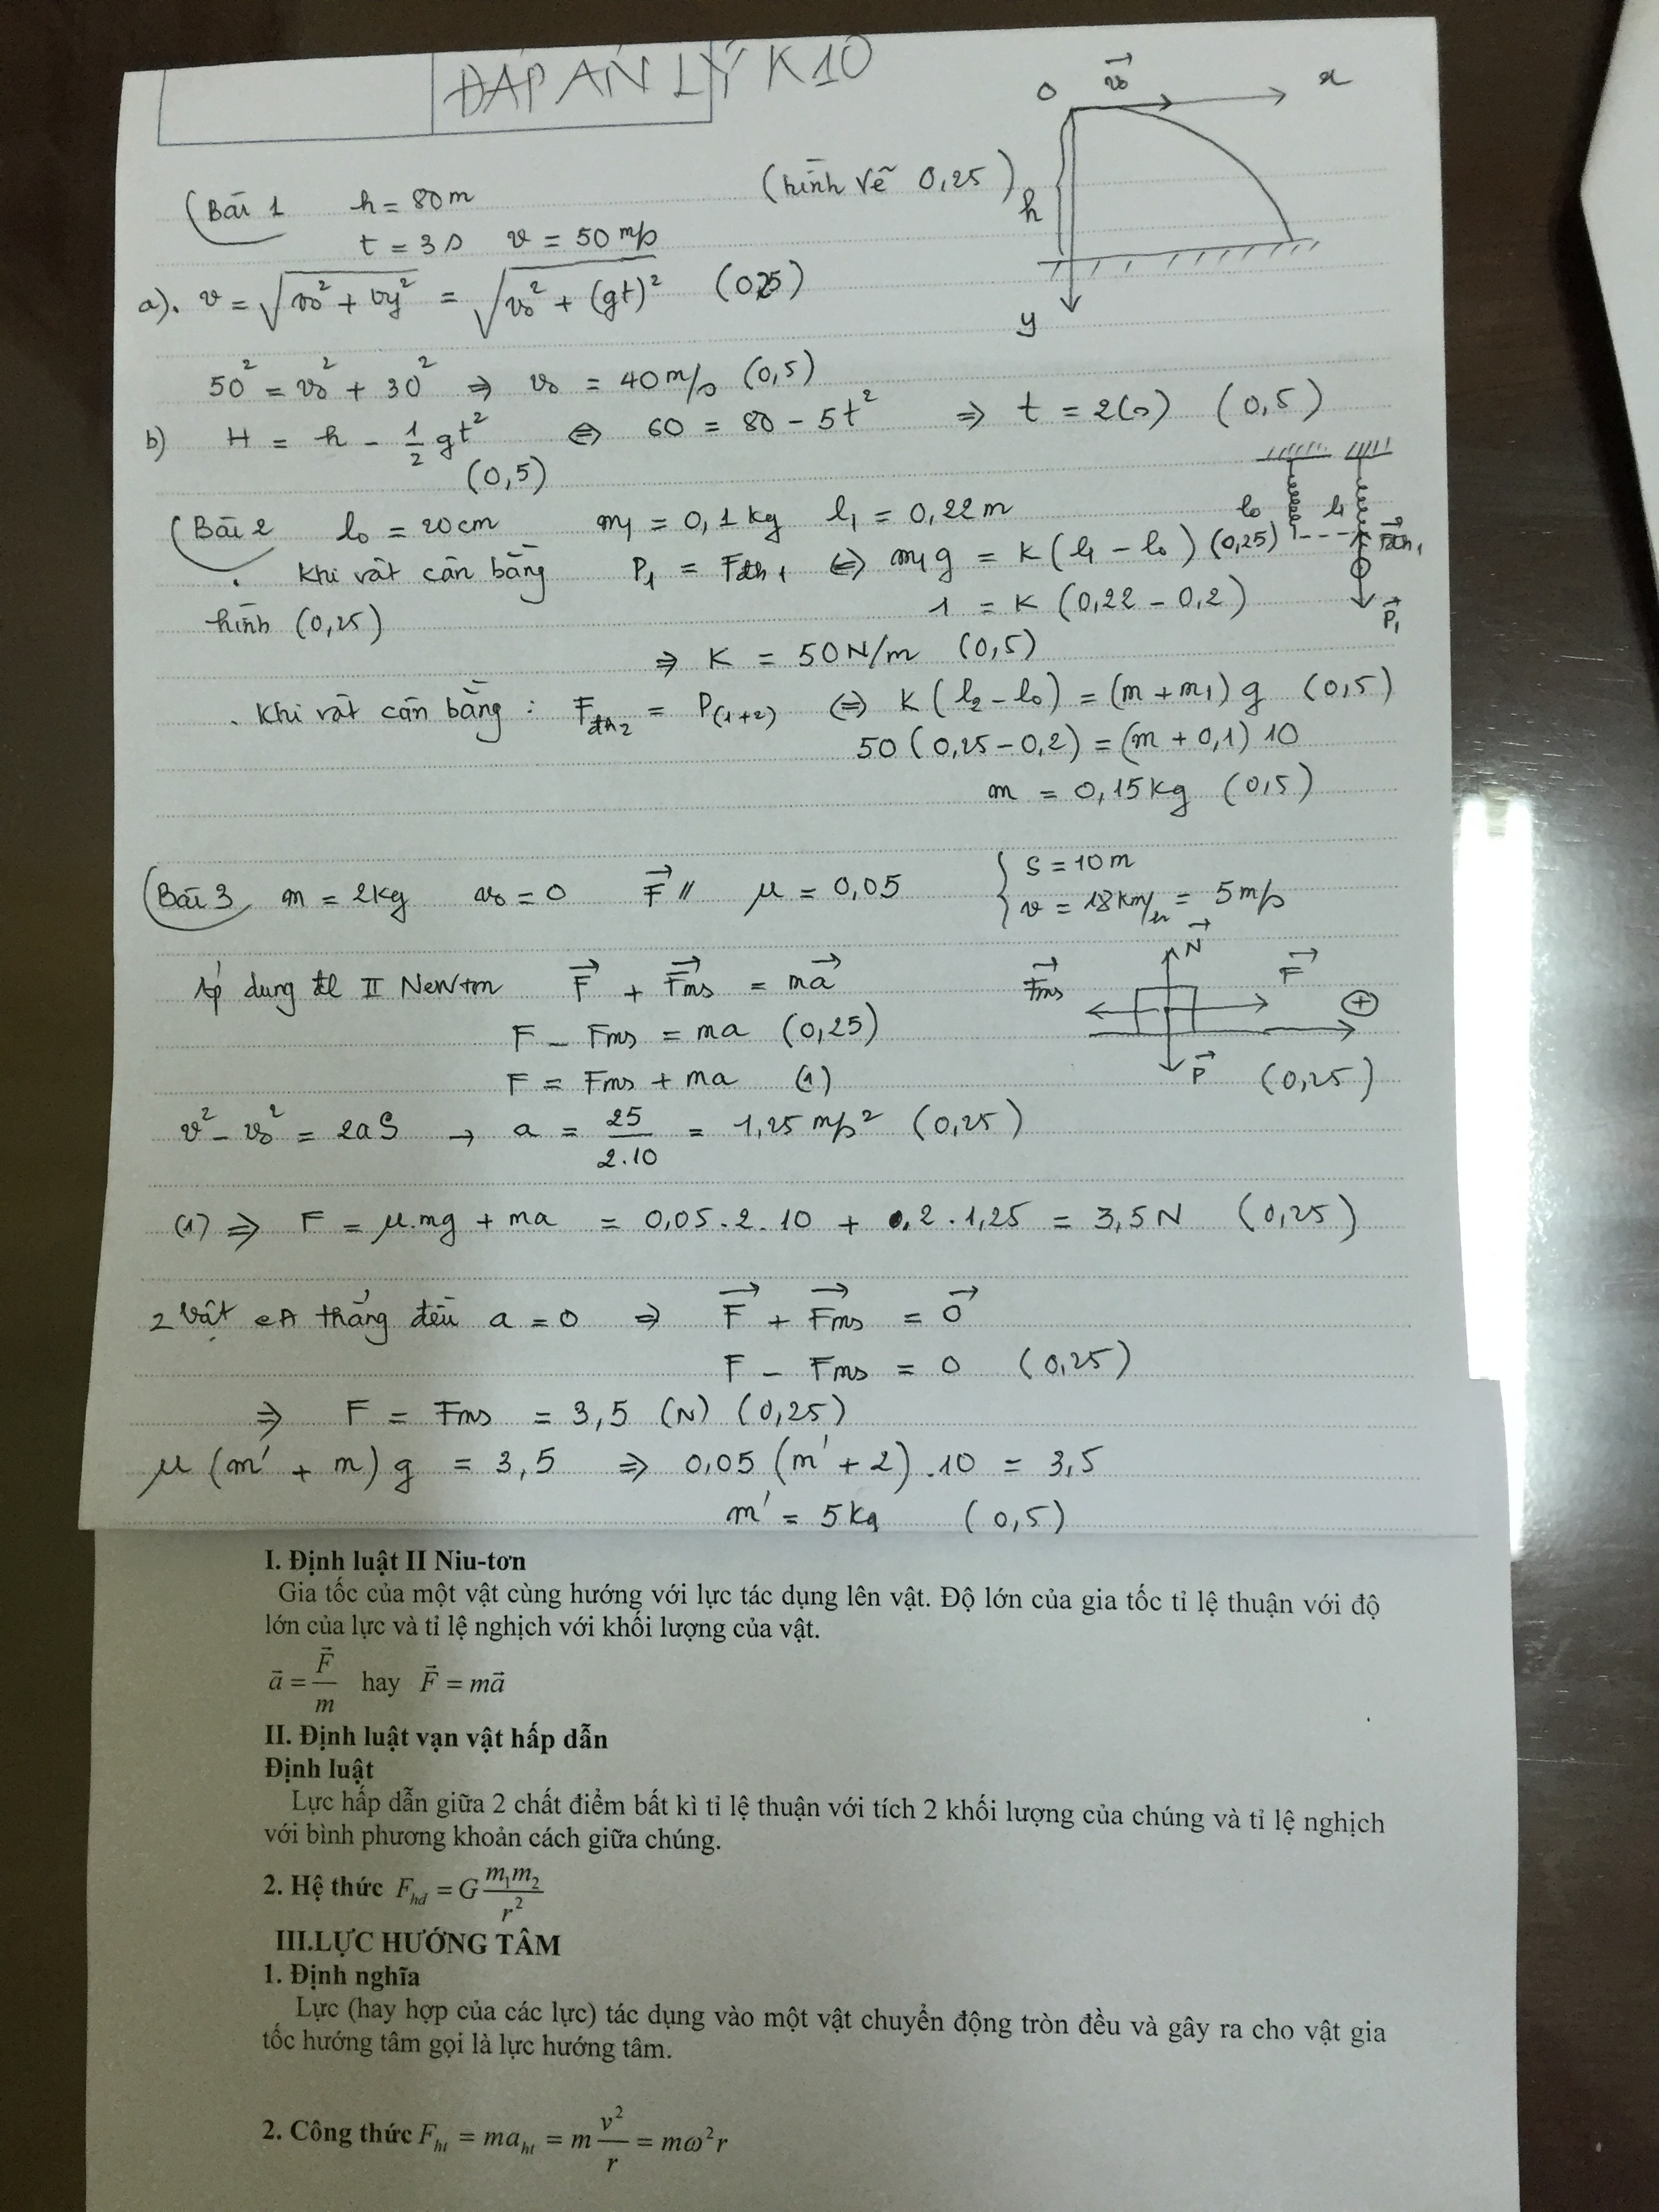 ĐÁP ÁN LÝ K10
O v₀ x
(hình vẽ 0,25) h
y
Bài 1 h = 80m
t = 3s v = 50 m/s
a). v = √(v₀² + vy²) = √(v₀² + (gt)²) (0,25)
50² = v₀² + 30² ⇒ v₀ = 40 m/s (0,5)
b) H = h - 1/2 gt² ⇔ 60 = 80 - 5t² ⇒ t = 2(s) (0,5)
(0,5)
Bài 2 l₀ = 20cm m₁ = 0,1 kg l₁ = 0,22 m
l₀ l₁ Fđh₁ P₁
. Khi vật cân bằng P₁ = Fđh₁ ⇔ m₁g = K(l₁ - l₀) (0,25)
hình (0,25) 1 = K (0,22 - 0,2)
⇒ K = 50 N/m (0,5)
. Khi vật cân bằng : Fđh₂ = P(1+2) ⇔ K(l₂ - l₀) = (m + m₁) g (0,5)
50 (0,25 - 0,2) = (m + 0,1) 10
m = 0,15 kg (0,5)
Bài 3 m = 2kg v₀ = 0 F⃗ // μ = 0,05 { S = 10 m
v = 18 km/h = 5 m/s
Áp dụng đl II Newton F⃗ + F⃗ms = ma⃗
N⃗ F⃗ms F⃗ ⊕ P⃗ (0,25)
F - Fms = ma (0,25)
F = Fms + ma (1)
v² - v₀² = 2aS → a = 25/2.10 = 1,25 m/s² (0,25)
(1) ⇒ F = μ.mg + ma = 0,05. 2. 10 + 2 . 1,25 = 3,5 N (0,25)
2 Vật cđ thẳng đều a = 0 ⇒ F⃗ + F⃗ms = 0⃗
F - Fms = 0 (0,25)
⇒ F = Fms = 3,5 (N) (0,25)
μ (m' + m) g = 3,5 ⇒ 0,05 (m' + 2) .10 = 3,5
m' = 5 kg (0,5)
I. Định luật II Niu-tơn
Gia tốc của một vật cùng hướng với lực tác dụng lên vật. Độ lớn của gia tốc tỉ lệ thuận với độ
lớn của lực và tỉ lệ nghịch với khối lượng của vật.
a⃗ = F⃗/m hay F⃗ = ma⃗
II. Định luật vạn vật hấp dẫn
Định luật
Lực hấp dẫn giữa 2 chất điểm bất kì tỉ lệ thuận với tích 2 khối lượng của chúng và tỉ lệ nghịch
với bình phương khoản cách giữa chúng.
2. Hệ thức F_hd = G m₁m₂/r²
III.LỰC HƯỚNG TÂM
1. Định nghĩa
Lực (hay hợp của các lực) tác dụng vào một vật chuyển động tròn đều và gây ra cho vật gia
tốc hướng tâm gọi là lực hướng tâm.
2. Công thức F_ht = ma_ht = m v²/r = mω²r